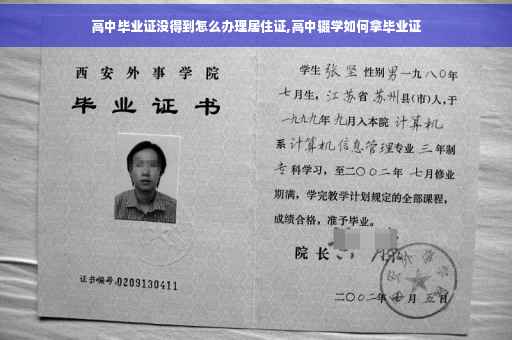 高中毕业证没得到怎么办理居住证,高中辍学如何拿毕业证
西安外事学院
毕业证书
证书编号:0209130411
学生 张坚 性别 男 一九八〇年
七月生,江苏省 苏州县(市)人,于
一九九九年 九月入本院 计算机
系 计算机信息管理专业 三 年制
专科学习,至二〇〇二年 七月修业
期满,学完教学计划规定的全部课程,
成绩合格,准予毕业。
院长
二〇〇二年 七月 五日